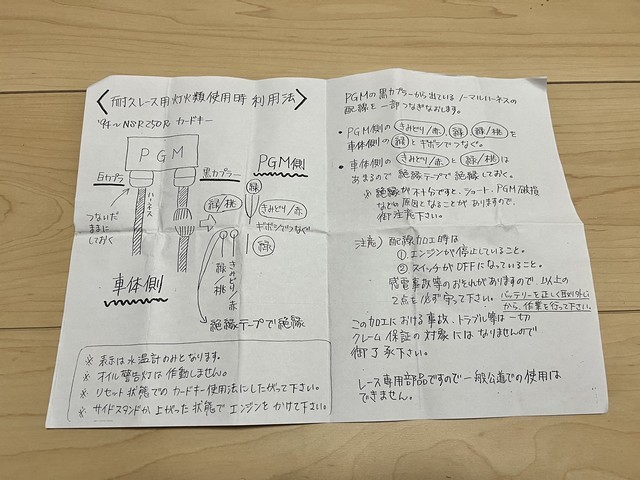 〈耐久レース用灯火類使用時 利用法〉
'94〜NSR250R カードキー
PGM
白カプラ
黒カプラー
PGM側
ハーネス
つないだ
ままに
しておく
緑/桃
緑
きみどり/赤
ギボシでつなぐ
緑
緑/桃
きみどり/赤
車体側
絶縁テープで絶縁
※ 表示は水温計のみとなります。
※ オイル警告灯は作動しません。
※ リセット状態でのカードキー使用法にしたがって下さい。
※ サイドスタンドが上がった状態でエンジンをかけて下さい。
PGMの黒カプラーから出ているノーマルハーネスの
配線を一部つなぎなおします。
• PGM側の きみどり/赤 緑 緑/桃 を
車体側の 緑 とギボシでつなぐ。
• 車体側の きみどり/赤 と 緑/桃 は
あまるので絶縁テープで絶縁しておく。
※ 絶縁が不十分ですと、ショート、PGM破損
などの原因となることがありますので、
御注意下さい。
注意) 配線加工時は
① エンジンが停止していること。
② スイッチがOFFになっていること。
感電事故等のおそれがありますので、以上の
2点を必ず守って下さい。バッテリーを正しく取り外し
から、作業を行って下さい。
この加工における事故、トラブル等は一切
クレーム保証の対象にはなりませんので
御了承下さい。
レース専用部品ですので一般公道での使用は
できません。